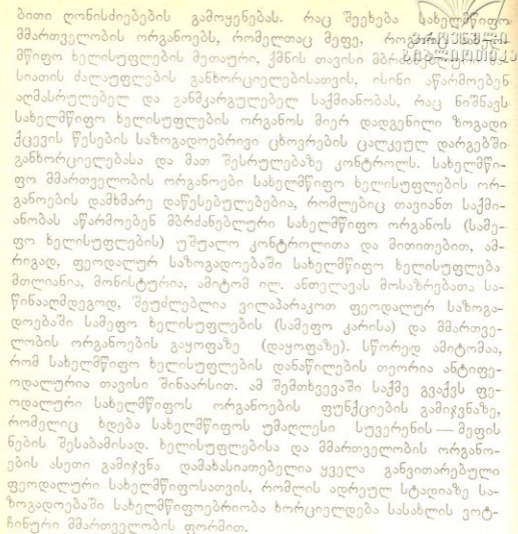 ბითი ღონისძიებების გამოყენებას. რაც შეეხება სახელმწიფო
მმართველობის ორგანოებს, რომელთაც მეფე, როგორც სახე-
მწიფო ხელისუფლების მეთაური, ქმნის თავისი
სიათის ძალაუფლების განხორციელებისათვის, ისინი აწარმოებენ
აღმასრულებელ და განმკარგულებელ საქმიანობას, რაც ნიშნავს
სახელმწიფო ხელისუფლების ორგანოს მიერ დადგენილი ზოგადი
ქცევის წესების საზოგადოებრივი ცხოვრების ცალკეულ დარგებში
განხორციელებასა და მათ შესრულებაზე კონტროლს. სახელმწი-
ფო მმართველობის ორგანოები სახელმწიფო ხელისუფლების ორ-
განოების დამხმარე დაწესებულებებია, რომლებიც თავიანთ საქმი-
ანობას აწარმოებენ მბრძანებლური სახელმწიფო ორგანოს (სამე-
ფო ხელისუფლების) უშუალო კონტროლითა და მითითებით, ამ-
რიგად, ფეოდალურ საზოგადოებაში სახელმწიფო ხელისუფლება
მთლიანია, მონისტურია, ამიტომ ილ. ანთელავას მოსაზრებათა სა-
წინააღმდეგოდ, შეუძლებლია ვილაპარაკოთ ფეოდალურ საზოგა-
დოებაში სამეფო ხელისუფლების (სამეფო კარისა) და მმართვე-
ლობის ორგანოების გაყოფაზე (დაყოფაზე). სწორედ ამიტომაა,
რომ სახელმწიფო ხელისუფლების დანაწილების თეორია ანტიფე-
ოდალურია თავისი შინაარსით. ამ შემთხვევაში საქმე გვაქვს ფე-
ოდალური სახელმწიფოს ორგანოების ფუნქციების გამიჯვნაზე,
რომელიც ხდება სახელმწიფოს უმაღლესი სუვერენის — მეფის
ნების შესაბამისად. ხელისუფლებისა და მმართველობის ორგანო-
ების ასეთი გამიჯვნა დამახასიათებელია ყველა განვითარებული
ფეოდალური სახელმწიფოსათვის, რომლის ადრეულ სტადიაზე სა-
ზოგადოებაში სახელმწიფოებრიობა ხორციელდება სასახლის ვოტ-
ჩინური მმართველობის ფორმით.